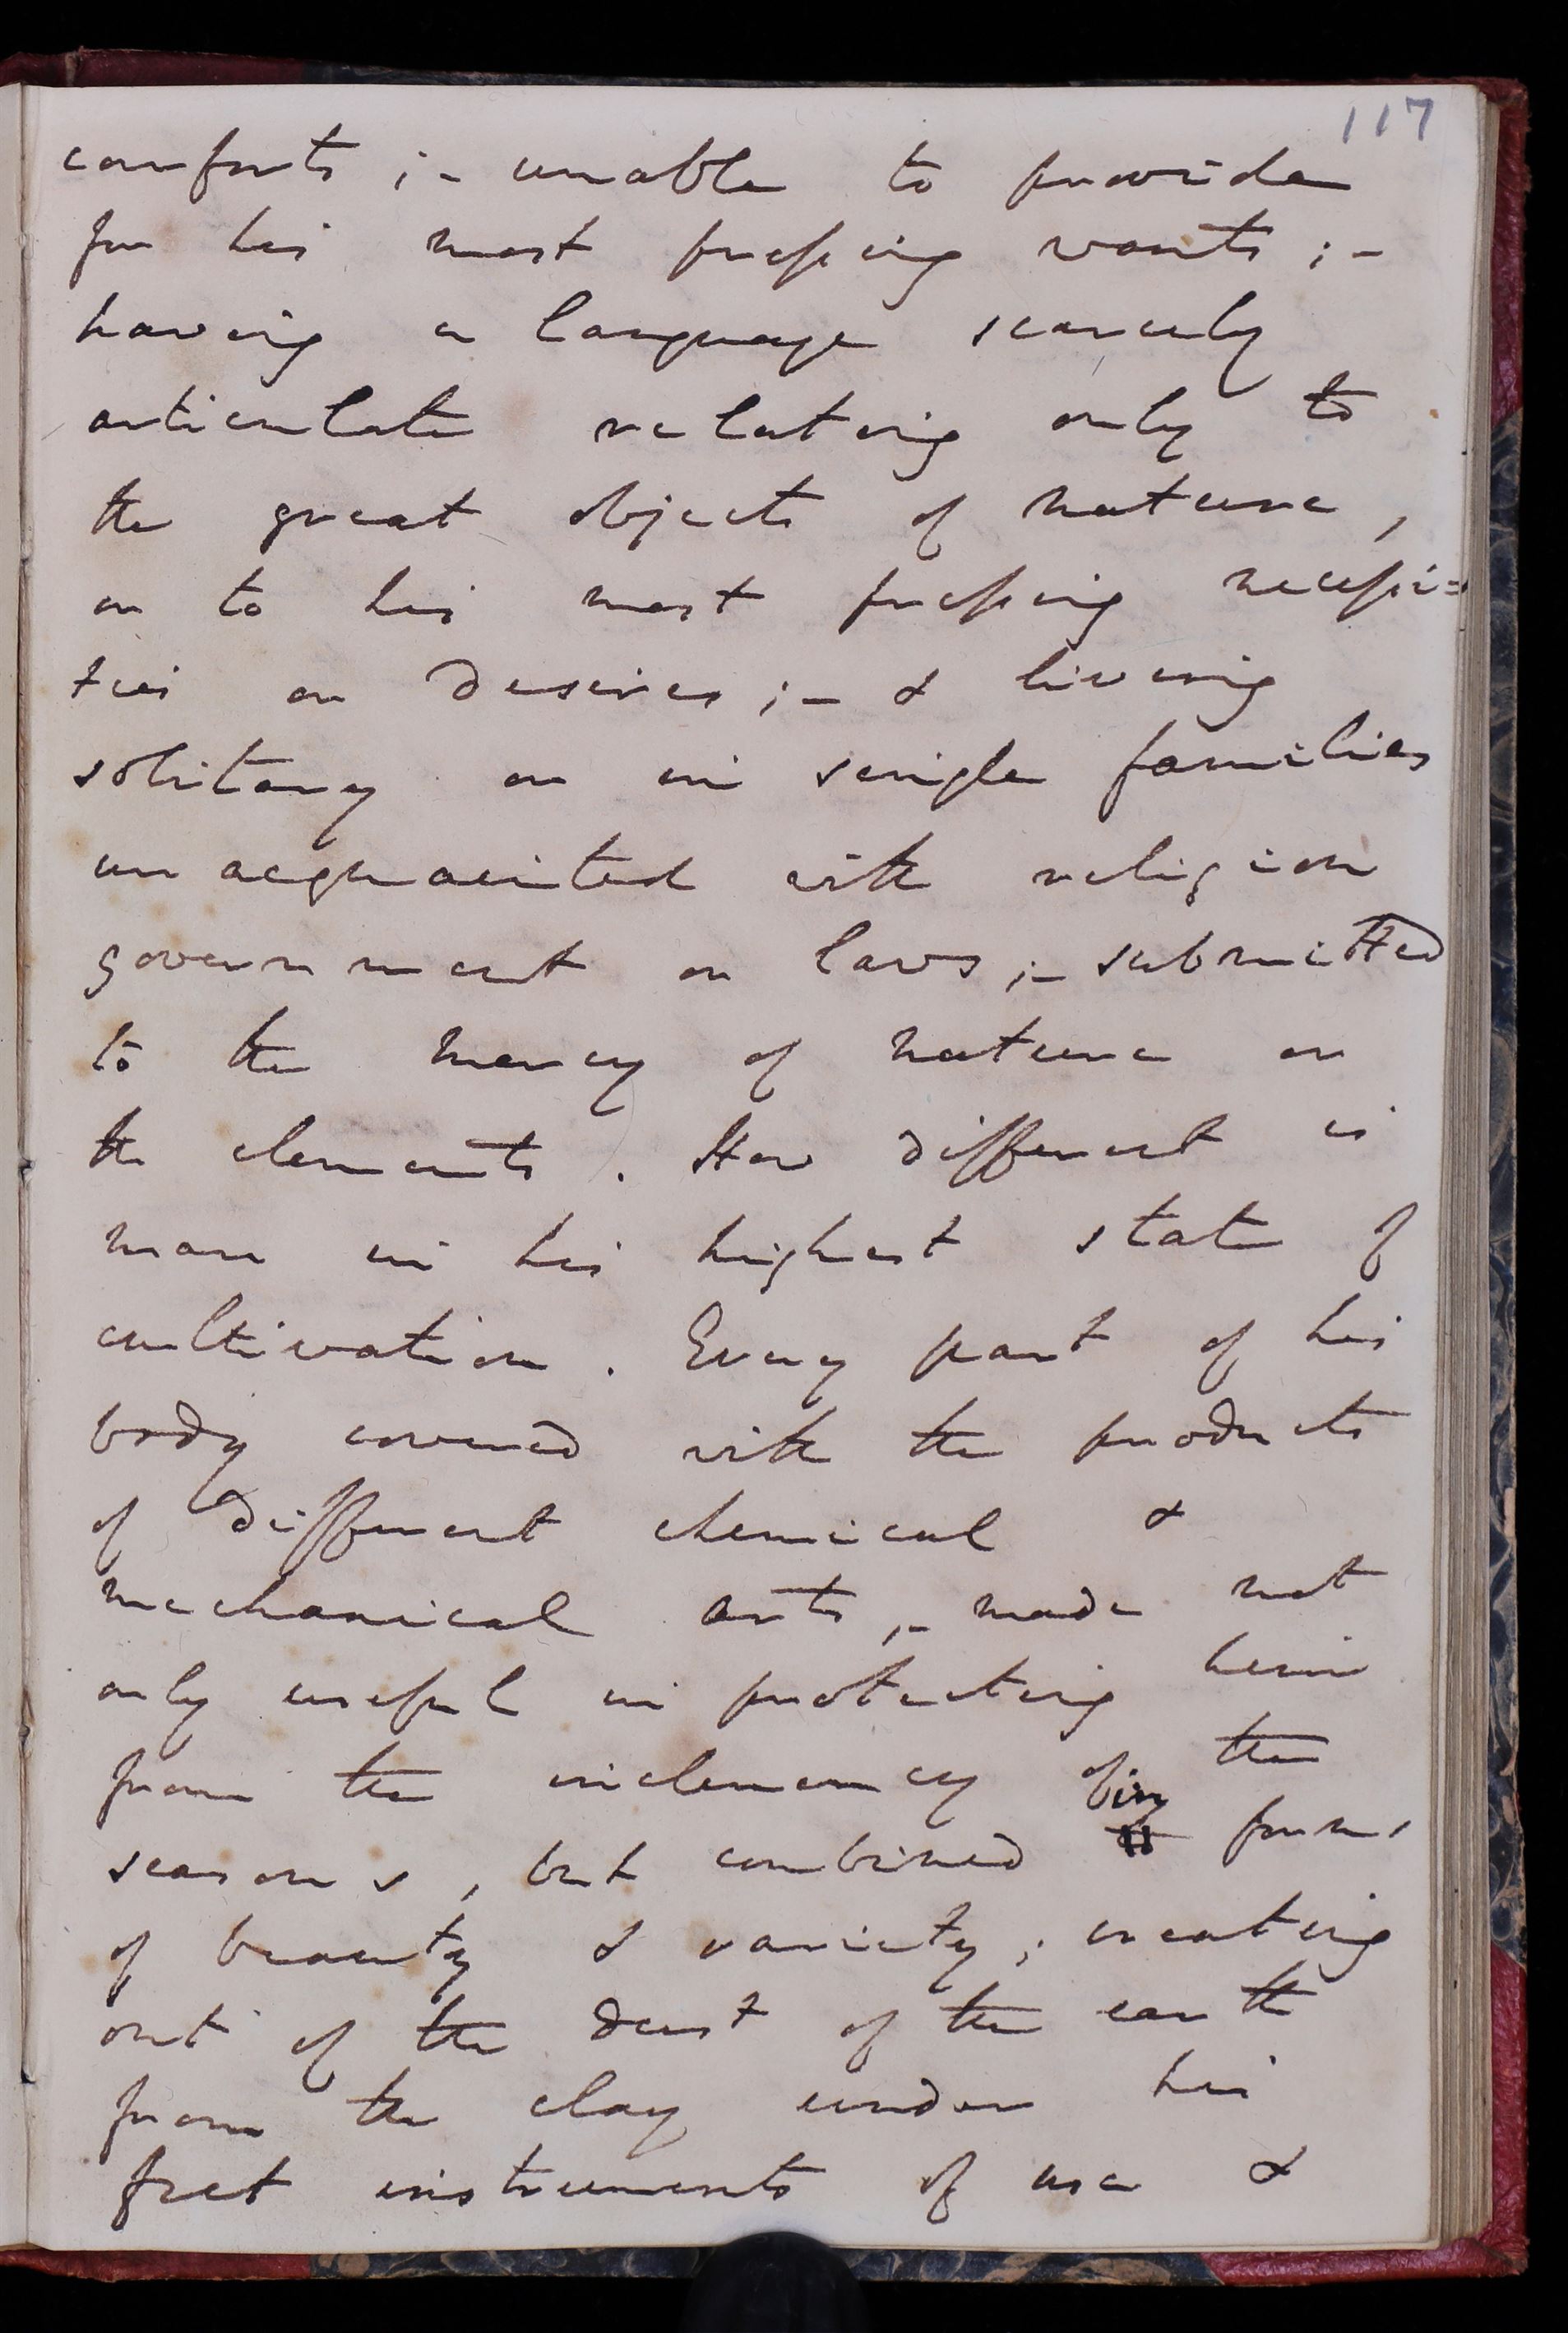 117
comforts ;- unable to provide
for his most pressing wants ;-
having a language scarcely
articulate relating only to
the great objects of nature,
or to his most pressing necessi=
ties or desires ;- & living
solitary or in single families
unacquainted with religion
government or laws ;- submitted
to the mercy of nature or
the elements. How different is
man in his highest state of
cultivation. Every part of his
body covered with the products
of different chemical &
mechanical arts ,- made not
only useful in protecting him
from the inclemency of the
seasons, but combined in forms
of beauty & variety ; creating
out of the dust of the earth
from the clay under his
feet instruments of use &